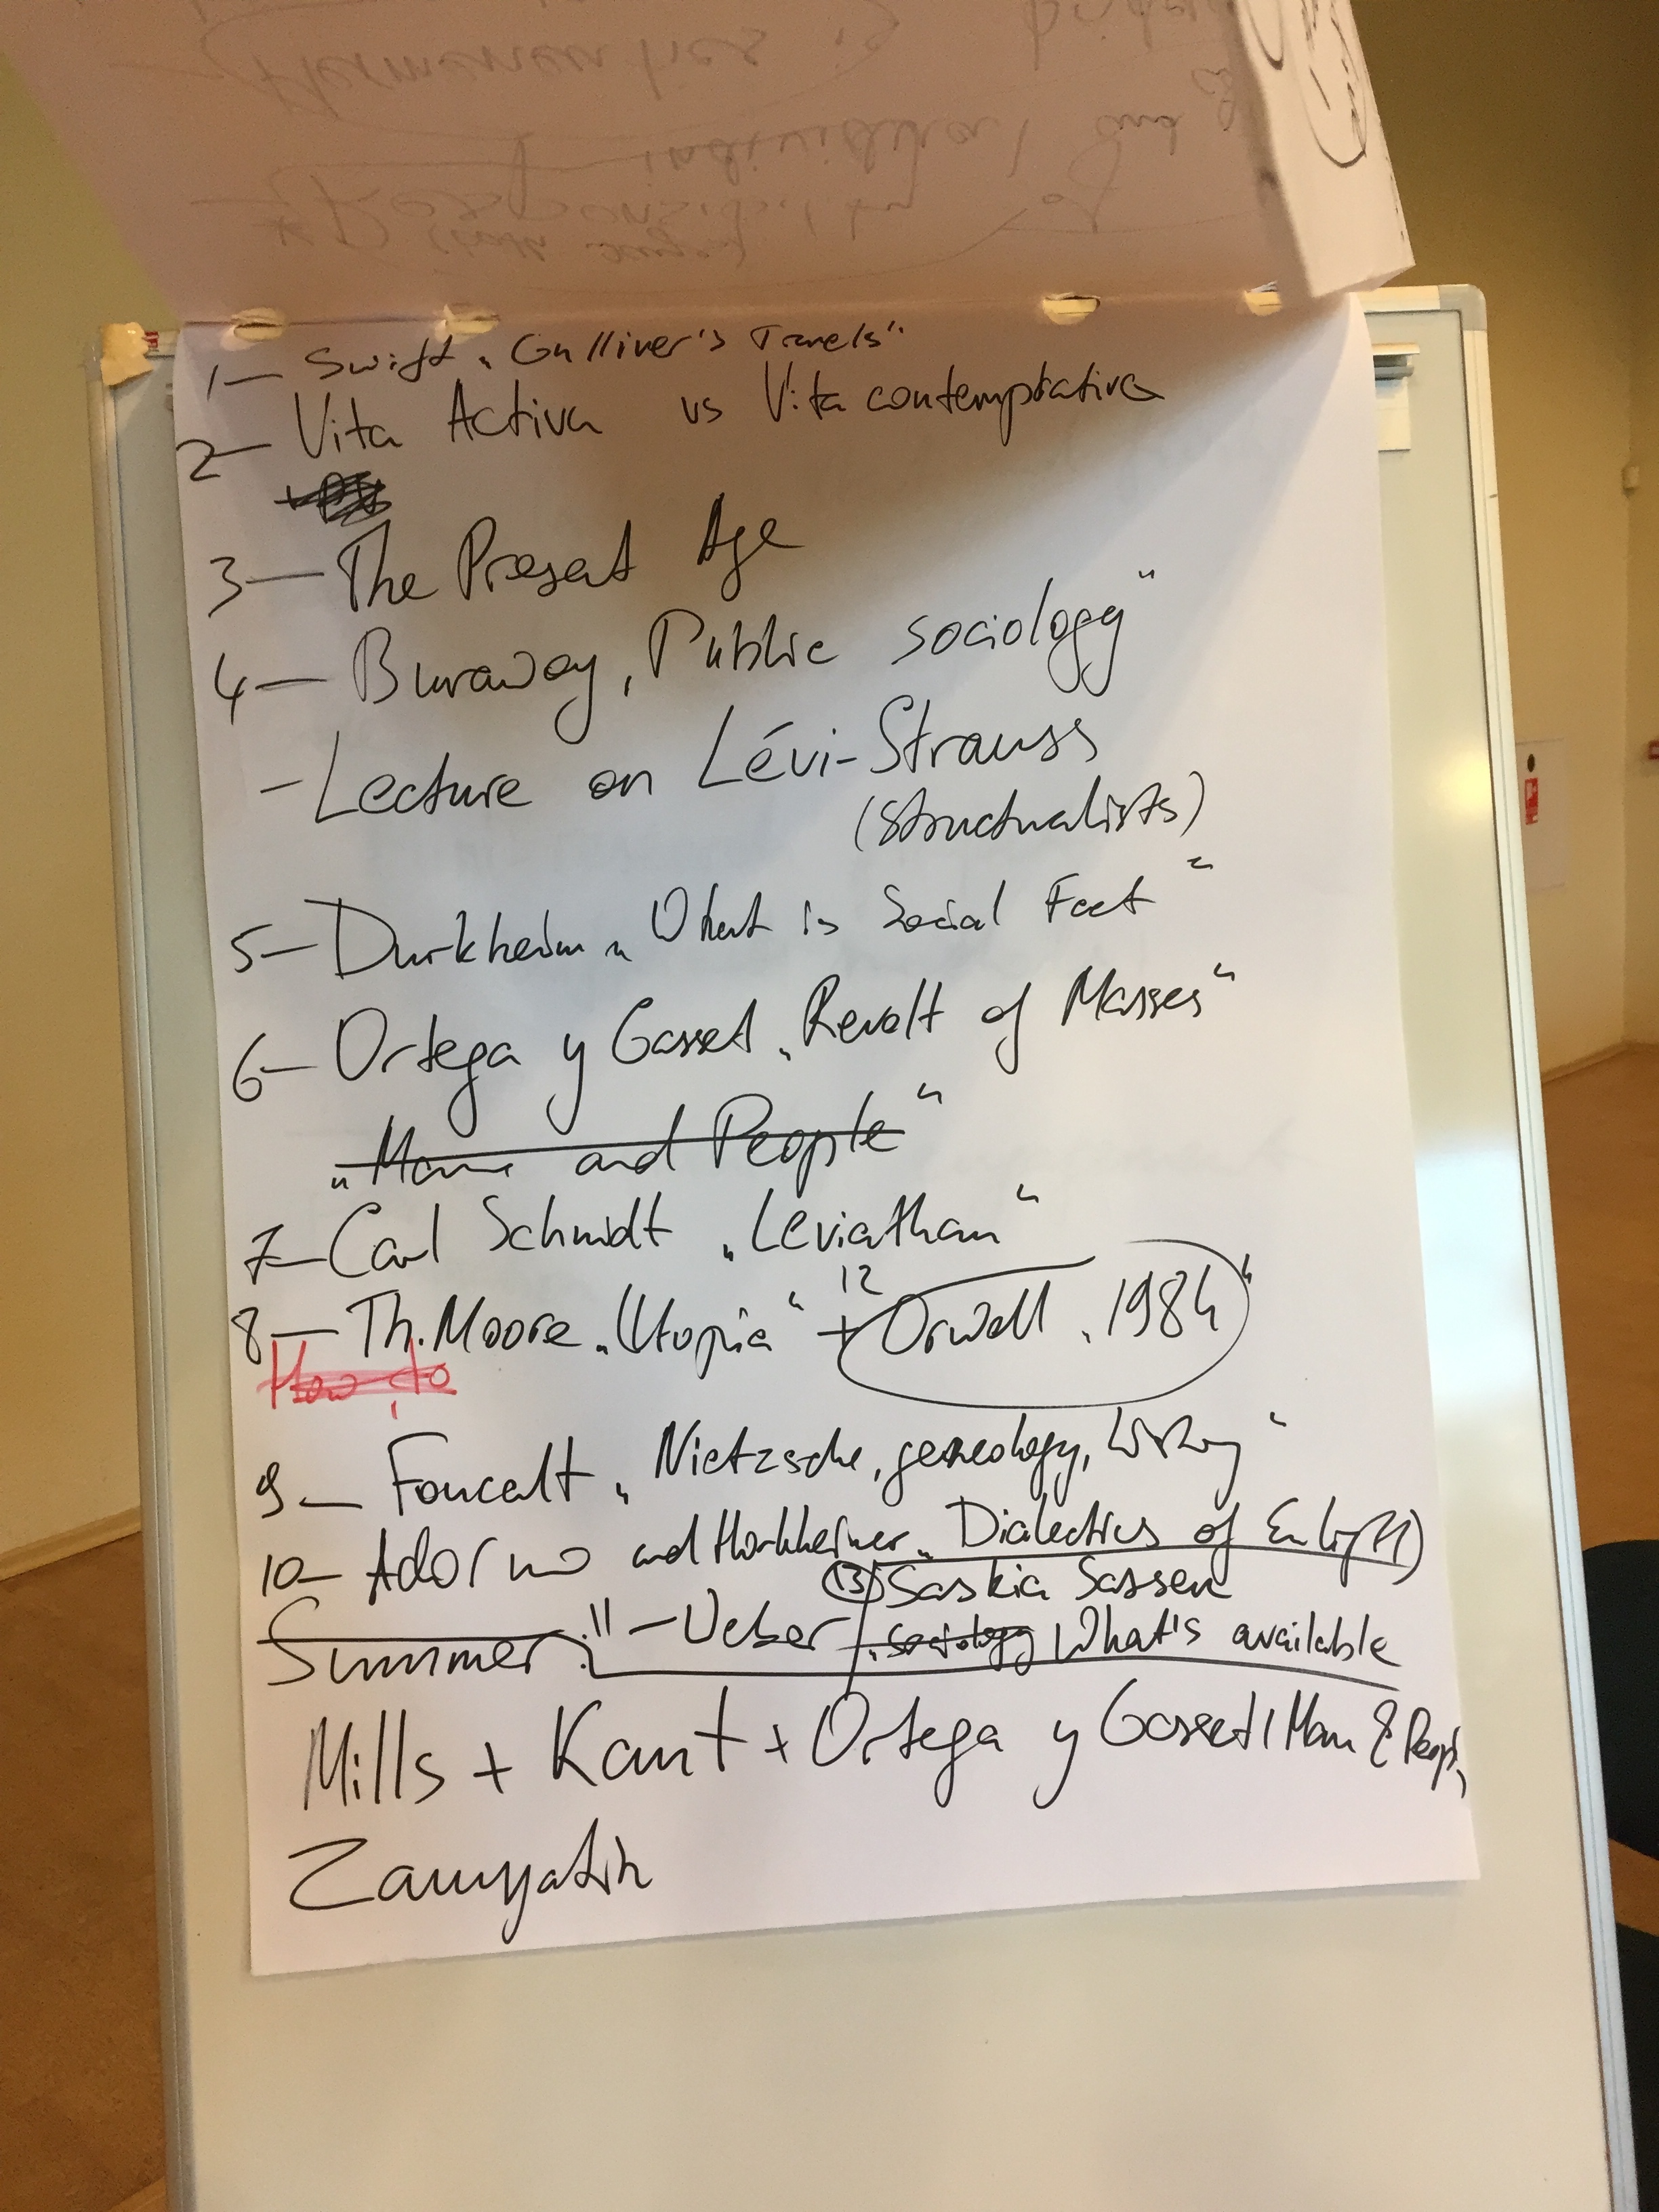 Hermeneutics is
individual and
Responsibility of
1— Swift „Gulliver's Travels"
2— Vita Activa vs Vita contemplativa
3— The Present Age
4— Burawoy „Public sociology"
- Lecture on Lévi-Strauss
(structuralists)
5— Durkheim „What is Social Fact"
6— Ortega y Gasset „Revolt of Masses"
„Man and People"
7— Carl Schmidt „Leviathan"
8— Th. Moore „Utopia" + 12 Orwell „1984"
How to
9— Foucalt „Nietzsche, geneology, history"
10— Adorno and Horkheimer „Dialectics of Enlight)
(13) Saskia Sassen
Summer: 11 — Veber „sociology What's available
Mills + Kant + Ortega y Gasset / Man & Peopl,
Zamyatin